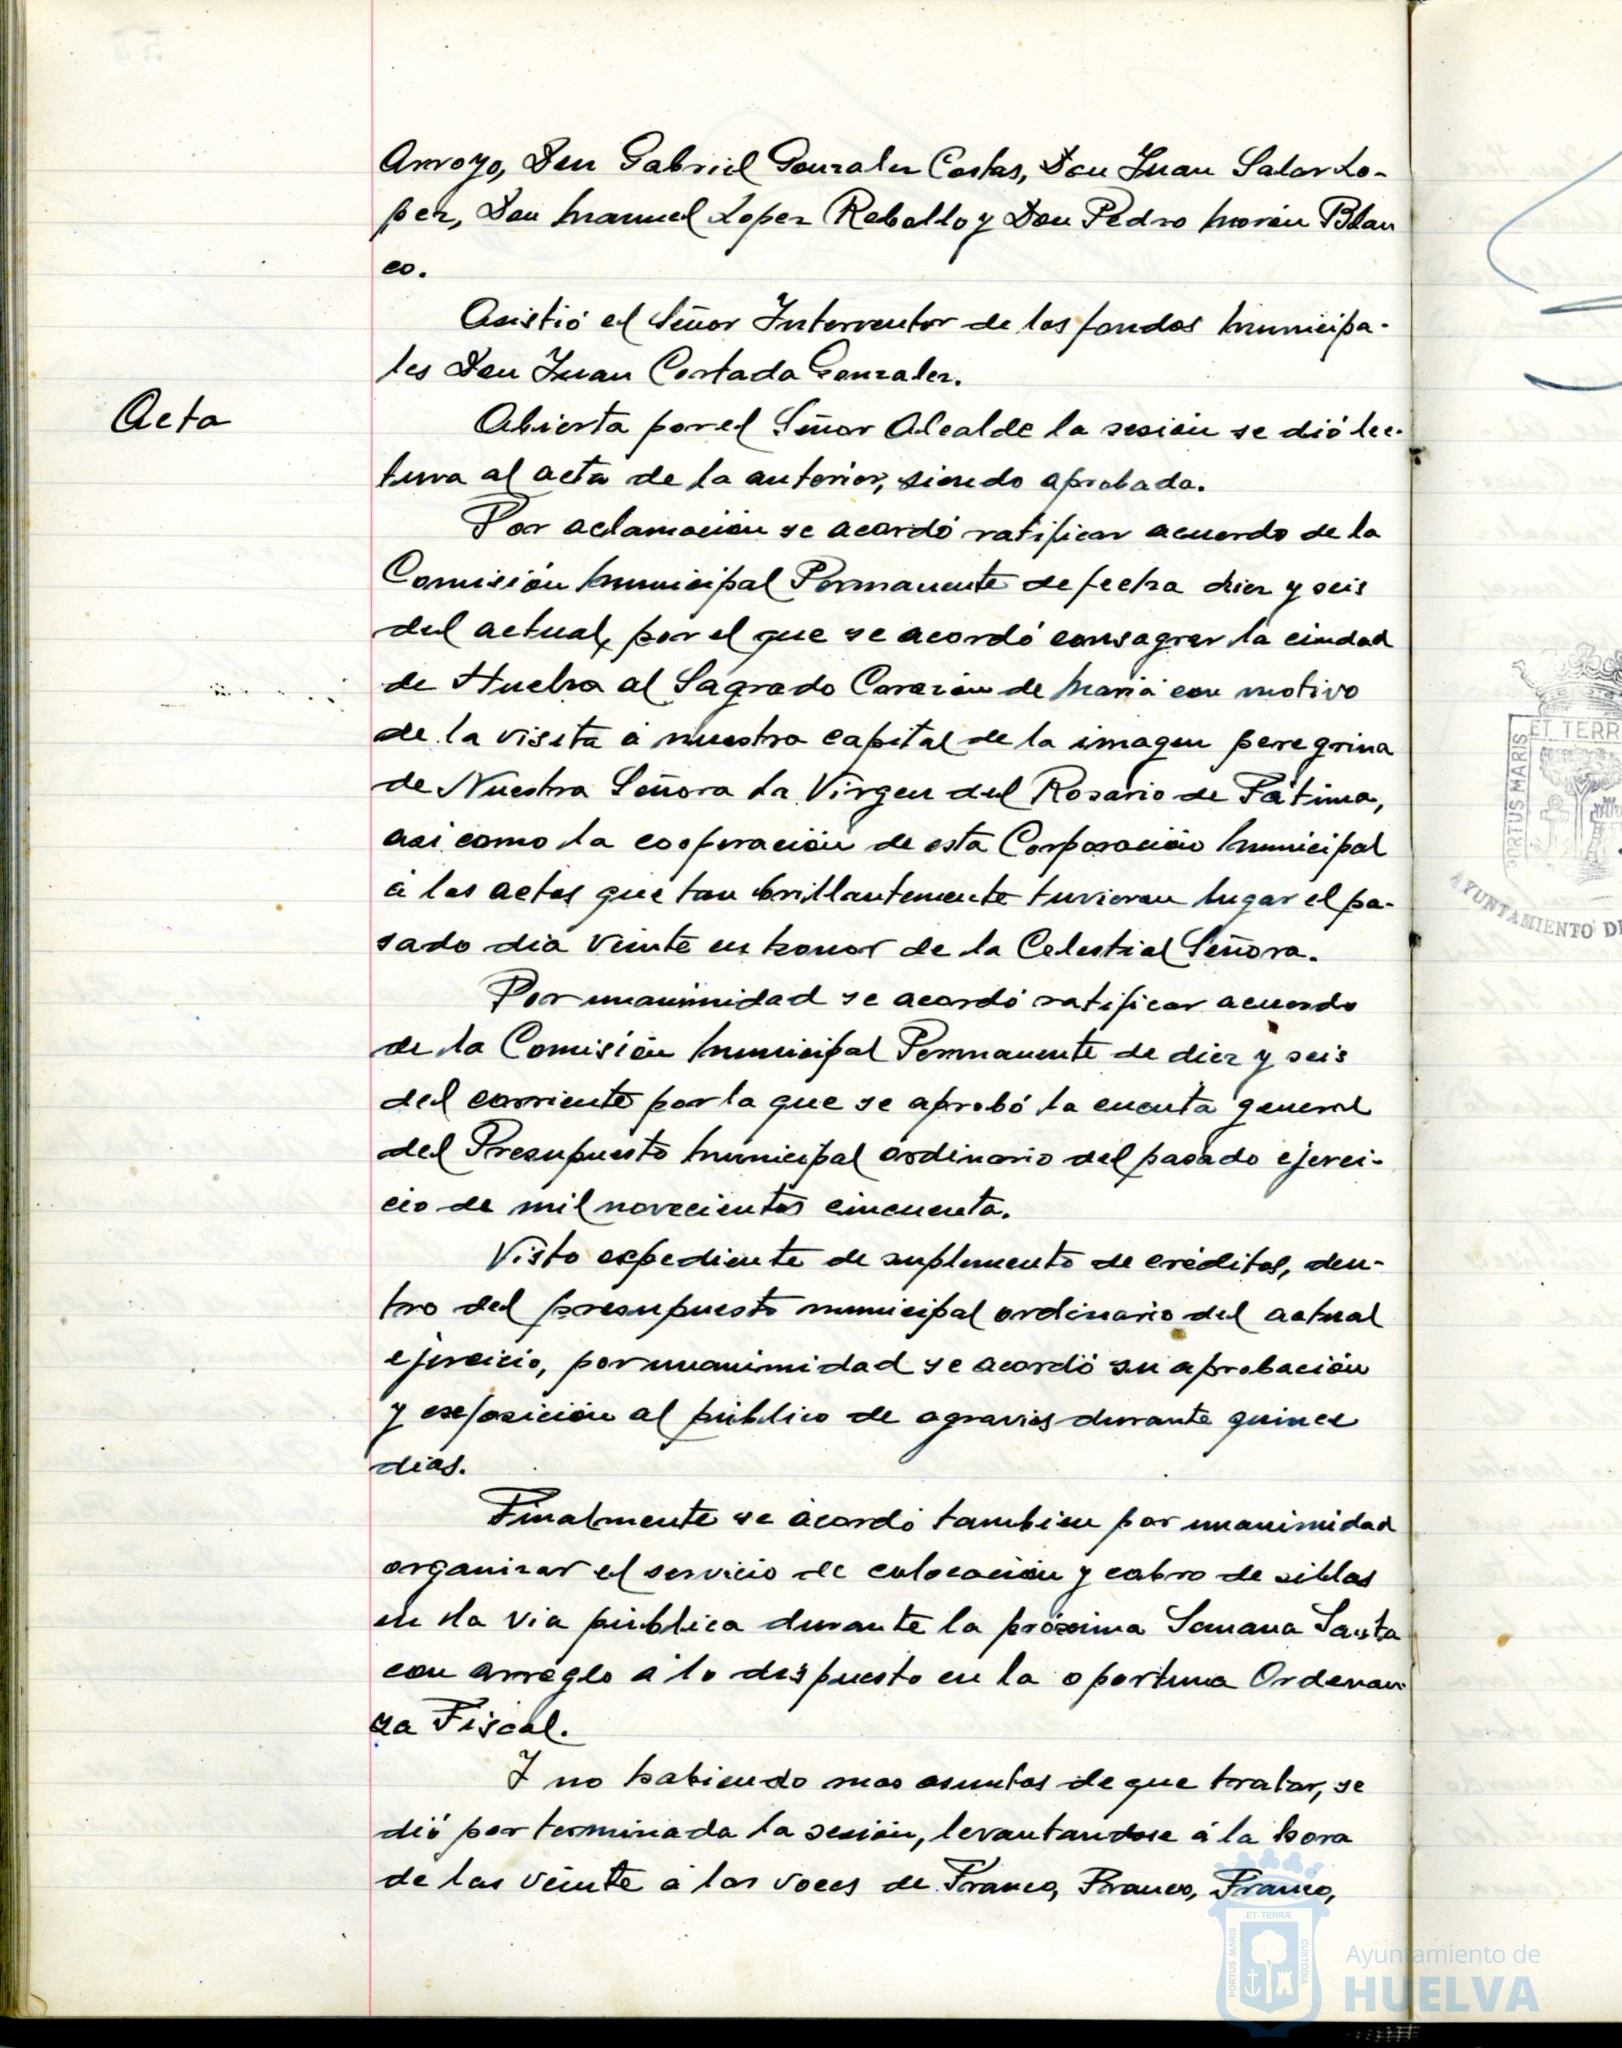 Arroyo, Don Gabriel Gonzalez Costas, Don Juan Salas Lo-
pez, Don Manuel Lopez Rebollo y Don Pedro Morón Blan
co.
Asistió el Señor Interventor de los fondos Municipa-
les Don Juan Cortada Gonzalez.
Acta
Abierta por el Señor Alcalde la sesión se dió lec-
tura al acta de la anterior, siendo aprobada.
Por aclamación se acordó ratificar acuerdo de la
Comisión Municipal Permanente de fecha diez y seis
del actual, por el que se acordó consagrar la ciudad
de Huelva al Sagrado Corazón de Maria con motivo
de la visita á nuestra capital de la imagen peregrina
de Nuestra Señora la Virgen del Rosario de Fátima,
asi como la cooperación de esta Corporación Municipal
á los actos que tan brillantemente tuvieron lugar el pa-
sado dia veinte en honor de la Celestial Señora.
Por unanimidad se acordó ratificar acuerdo
de la Comisión Municipal Permanente de diez y seis
del corriente por la que se aprobó la cuenta general
del Presupuesto Municipal ordinario del pasado ejerci-
cio de mil novecientos cincuenta.
Visto expediente de suplemento de créditos, den-
tro del presupuesto municipal ordinario del actual
ejercicio, por unanimidad se acordó su aprobación
y exposición al público de agravios durante quince
dias.
Finalmente se acordó tambien por unanimidad
organizar el servicio de colocación y cobro de sillas
en la via pública durante la próxima Semana Santa
con arreglo á lo dispuesto en la oportuna Ordenan-
za Fiscal.
Y no habiendo mas asuntos de que tratar, se
dió por terminada la sesión, levantandose á la hora
de las veinte á las voces de Franco, Franco, Franco,
PORTUS MARIS
ET TERR
AYUNTAMIENTO DE
PORTUS MARIS ET TERRÆ CUSTODIA
Ayuntamiento de
HUELVA